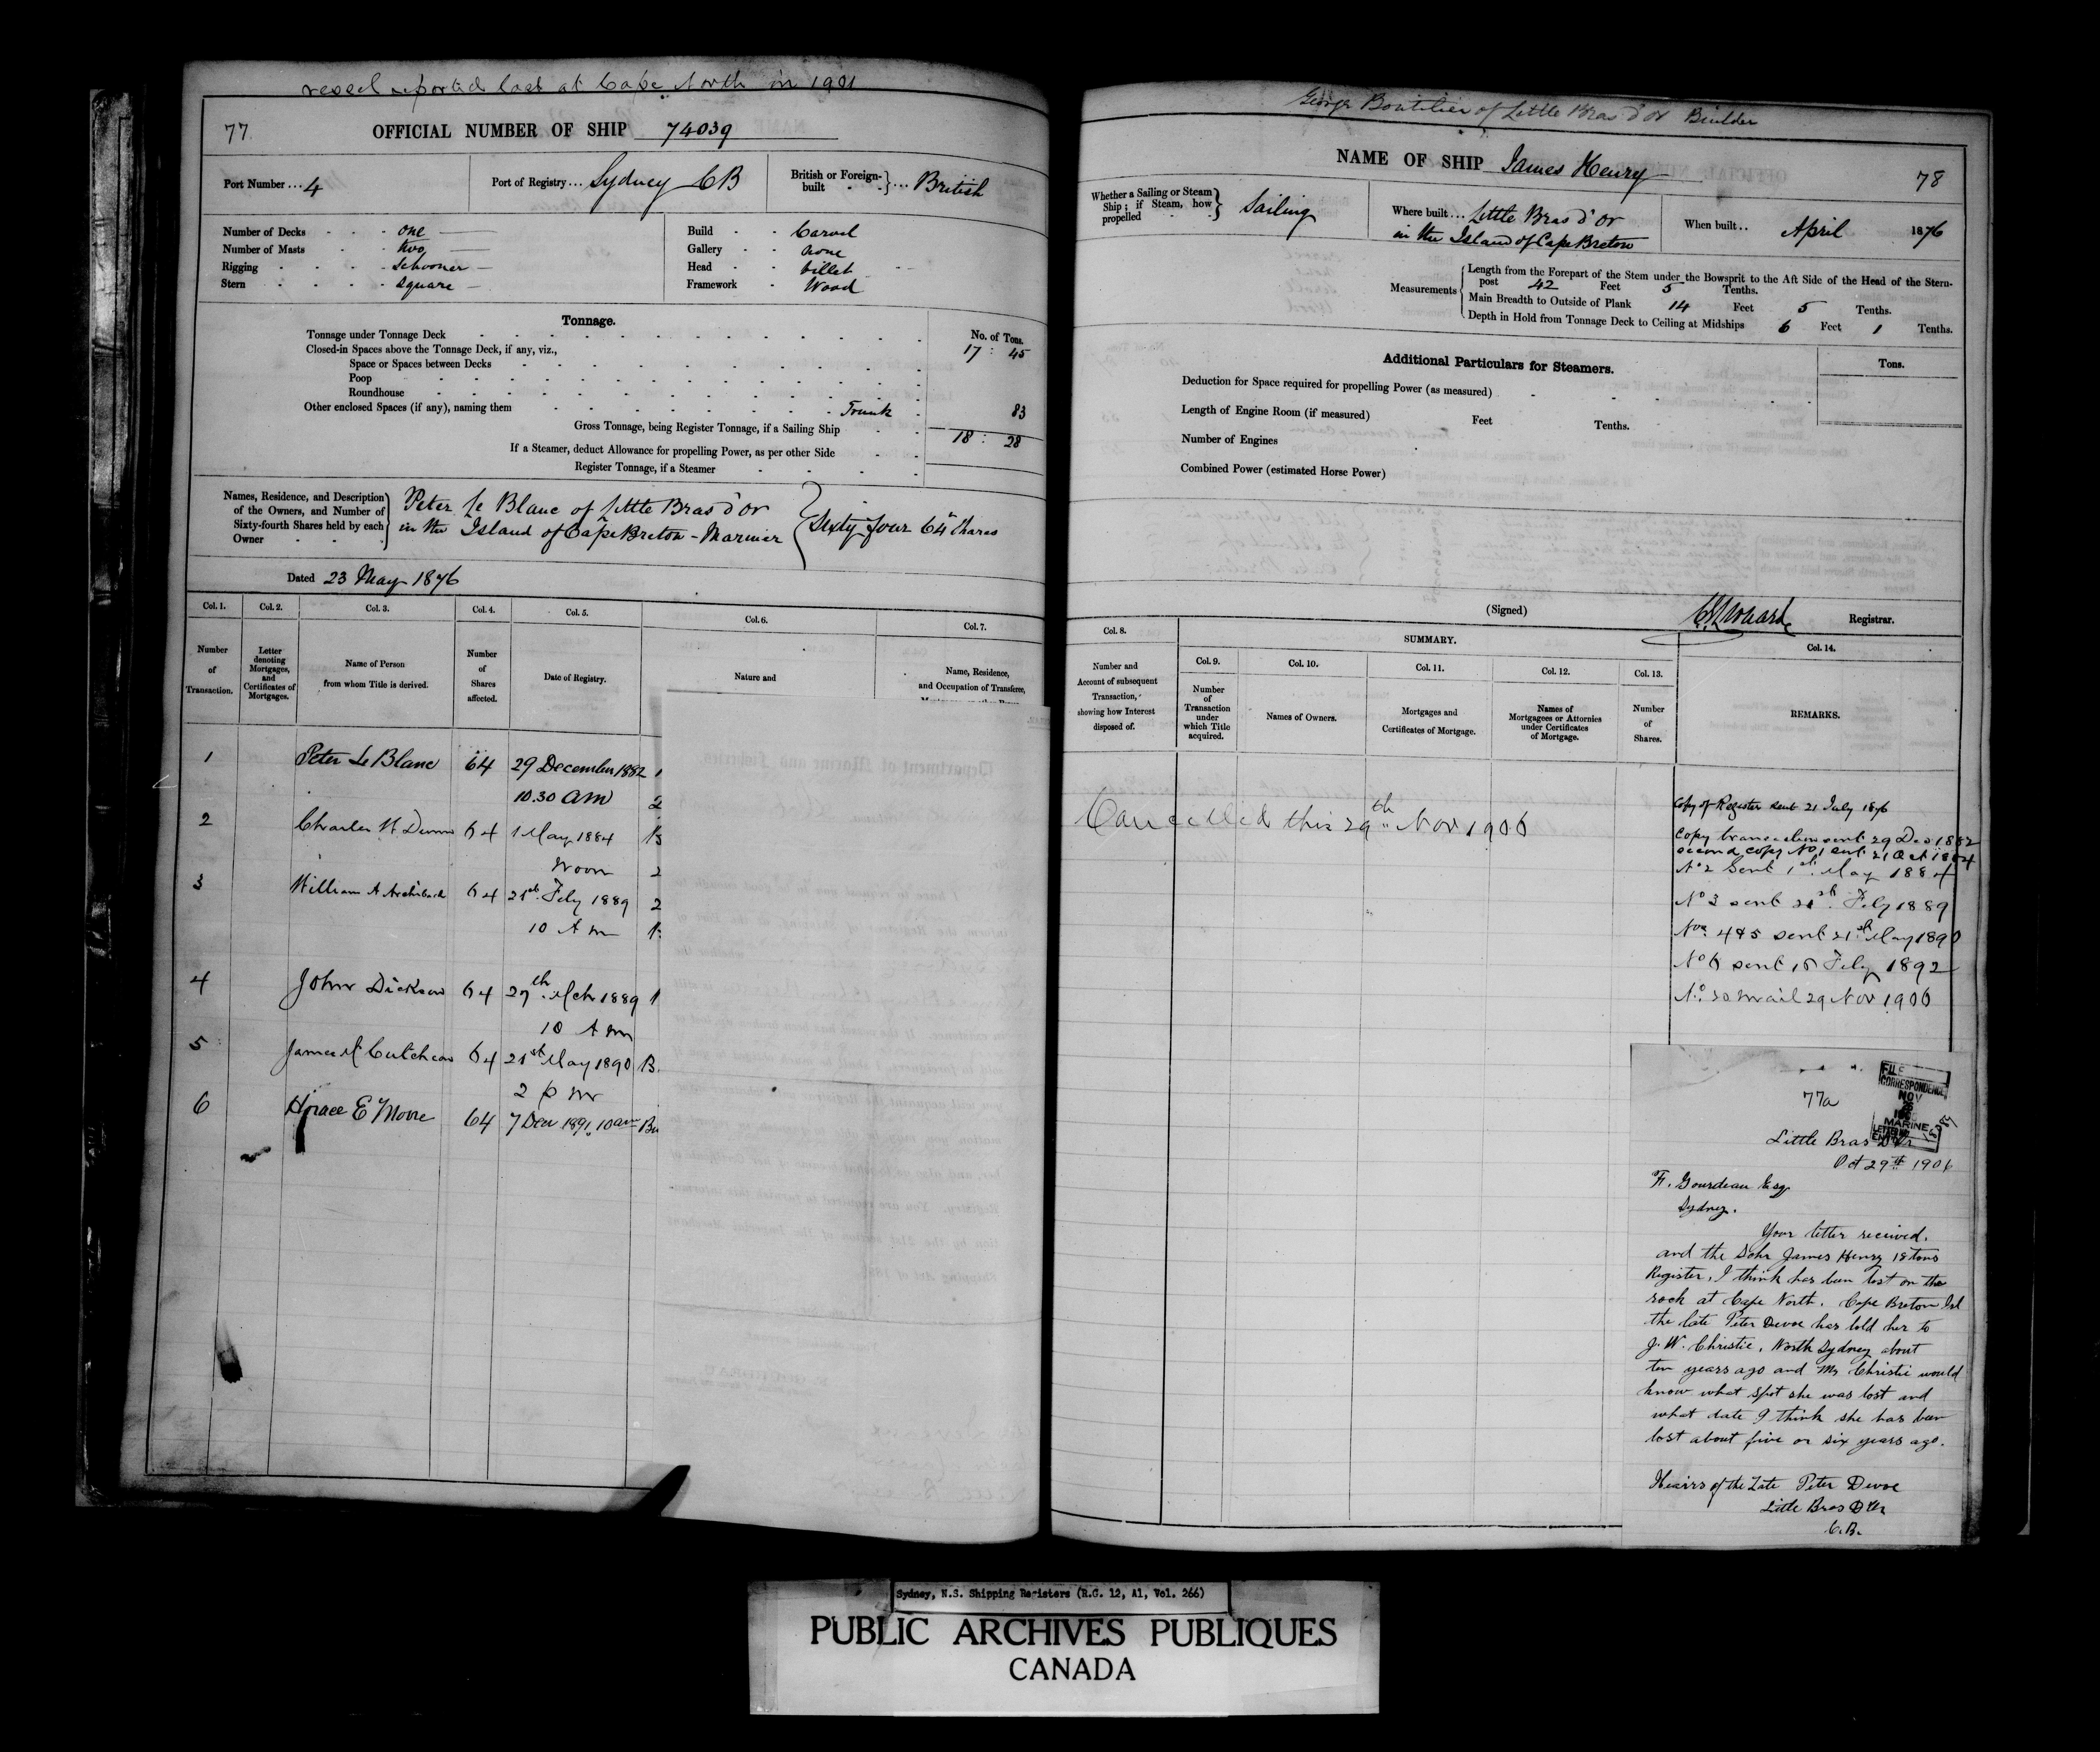 vessel reported lost at Cape North in 1901
77
OFFICIAL NUMBER OF SHIP 74039
Port Number ... 4
Port of Registry ... Sydney CB
British or Foreign-built ... British
Number of Decks one
Number of Masts two
Rigging Schooner
Stern Square
Build Carvel
Gallery None
Head billet
Framework Wood
Tonnage.
No. of Tons.
Tonnage under Tonnage Deck 17 : 45
Closed-in Spaces above the Tonnage Deck, if any, viz.,
Space or Spaces between Decks
Poop
Roundhouse
Other enclosed Spaces (if any), naming them Trunk 83
Gross Tonnage, being Register Tonnage, if a Sailing Ship 18 : 28
If a Steamer, deduct Allowance for propelling Power, as per other Side
Register Tonnage, if a Steamer
Names, Residence, and Description
of the Owners, and Number of
Sixty-fourth Shares held by each
Owner
Peter Le Blanc of Little Bras d'or
in the Island of Cape Breton - Mariner
Sixty four 64th Shares
Dated 23 May 1876
Col. 1. Col. 2. Col. 3. Col. 4. Col. 5. Col. 6. Col. 7.
Number of Transaction.
Letter denoting Mortgages, and Certificates of Mortgages.
Name of Person from whom Title is derived.
Number of Shares affected.
Date of Registry.
Nature and
Name, Residence, and Occupation of Transferee,
1 Peter Le Blanc 64 29 December 1882
10.30 am
2 Charles W Dunn 64 1 May 1884
Noon
3 William A Archibald 64 21st Feby 1889
10 A m
4 John Dickson 64 27th Mch 1889
10 A m
5 James McCutcheon 64 21st May 1890
2 p m
6 Horace E Moore 64 7 Decr 1891 10 am
George Boutilier of Little Bras d'or Builder
NAME OF SHIP James Henry
78
Whether a Sailing or Steam
Ship; if Steam, how
propelled
Sailing
Where built ... Little Bras d'or
in the Island of Cape Breton
When built .. April 1876
Measurements
Length from the Forepart of the Stem under the Bowsprit to the Aft Side of the Head of the Stern-
post 42 Feet 5 Tenths.
Main Breadth to Outside of Plank 14 Feet 5 Tenths.
Depth in Hold from Tonnage Deck to Ceiling at Midships 6 Feet 1 Tenths.
Additional Particulars for Steamers.
Tons.
Deduction for Space required for propelling Power (as measured)
Length of Engine Room (if measured) Feet Tenths.
Number of Engines
Combined Power (estimated Horse Power)
(Signed) Registrar.
Col. 8.
SUMMARY.
Col. 14.
Col. 9. Col. 10. Col. 11. Col. 12. Col. 13.
Number and Account of subsequent Transaction, showing how Interest disposed of.
Number of Transaction under which Title acquired.
Names of Owners.
Mortgages and Certificates of Mortgage.
Names of Mortgagees or Attornies under Certificates of Mortgage.
Number of Shares.
REMARKS.
Cancelled this 29th Nov 1906
Copy of Register sent 21 July 1876
Copy transaction sent 29 Dec 1882
second copy No 1 sent 21 Oct 1884
No 2 Sent 1st May 1884
No 3 sent 21st Feby 1889
Nos 4 & 5 sent 21st May 1890
No 6 sent 15 Feby 1892
29 Nov 1906
77a
FILE
CORRESPONDENCE
NOV
MARINE
Little Bras D'Or
Oct 29th 1906
F. Gourdeau Esq
Sydney.
Your letter received.
and the Schr James Henry 18 tons
Register, I think has been lost on the
rock at Cape North. Cape Breton Isl
the late Peter Devoe has sold her to
J. W. Christie, North Sydney about
ten years ago and Mr Christie would
know what spot she was lost and
what date I think she has been
lost about five or six years ago.
Heairs of the Late Peter Devoe
Little Bras D'Or
C.B.
Sydney, N.S. Shipping Registers (R.G. 12, A1, Vol. 266)
PUBLIC ARCHIVES PUBLIQUES
CANADA